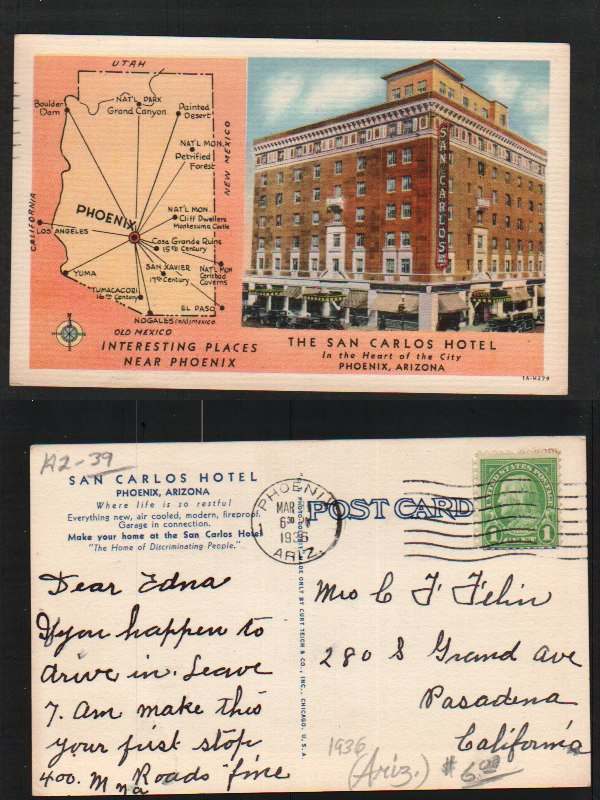 UTAH
Boulder Dam
NAT'L PARK
Grand Canyon
Painted Desert
NAT'L MON.
Petrified Forest
NEW MEXICO
CALIFORNIA
PHOENIX
NAT'L MON.
Cliff Dwellers
Montezuma Castle
LOS ANGELES
Casa Grande Ruins
15th Century
YUMA
SAN XAVIER
17th Century
NAT'L MON
Carlsbad Caverns
TUMACACORI
16th Century
EL PASO
NOGALES (old) MEXICO
OLD MEXICO
INTERESTING PLACES
NEAR PHOENIX
SAN CARLOS
THE SAN CARLOS HOTEL
In the Heart of the City
PHOENIX, ARIZONA
1A-H279
A2-39
SAN CARLOS HOTEL
PHOENIX, ARIZONA
Where life is so restful
Everything new, air cooled, modern, fireproof.
Garage in connection.
Make your home at the San Carlos Hotel
"The Home of Discriminating People."
PHOENIX
MAR
6 30 PM
1936
ARIZ.
POST CARD
UNITED STATES POSTAGE
1 1
MADE ONLY BY CURT TEICH & CO., INC., CHICAGO, U.S.A.
Dear Edna
If you happen to
drive in. Leave
7. Am make this
your first stop
400. M Roads fine
Mrs C F Felin
280 S Grand Ave
Pasadena
California
1936
(Ariz.) $6.00